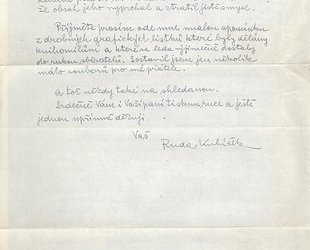 že obsah jeho vyprchal a ztratil ještě smysl.
Přijměte prosím ode mne malou upomínku
z drobných grafických lístků které byly dělány
knihomilům a které se leda výjimečně dostaly
do rukou sběratelů. Sestavil jsem jen několik
málo souborů pro mé přátele.
A tož někdy také na shledanou.
Srdečně Vám i Vaší paní tisknu ruce a ještě
jednou upřímně děkuji.
Váš
Ruda